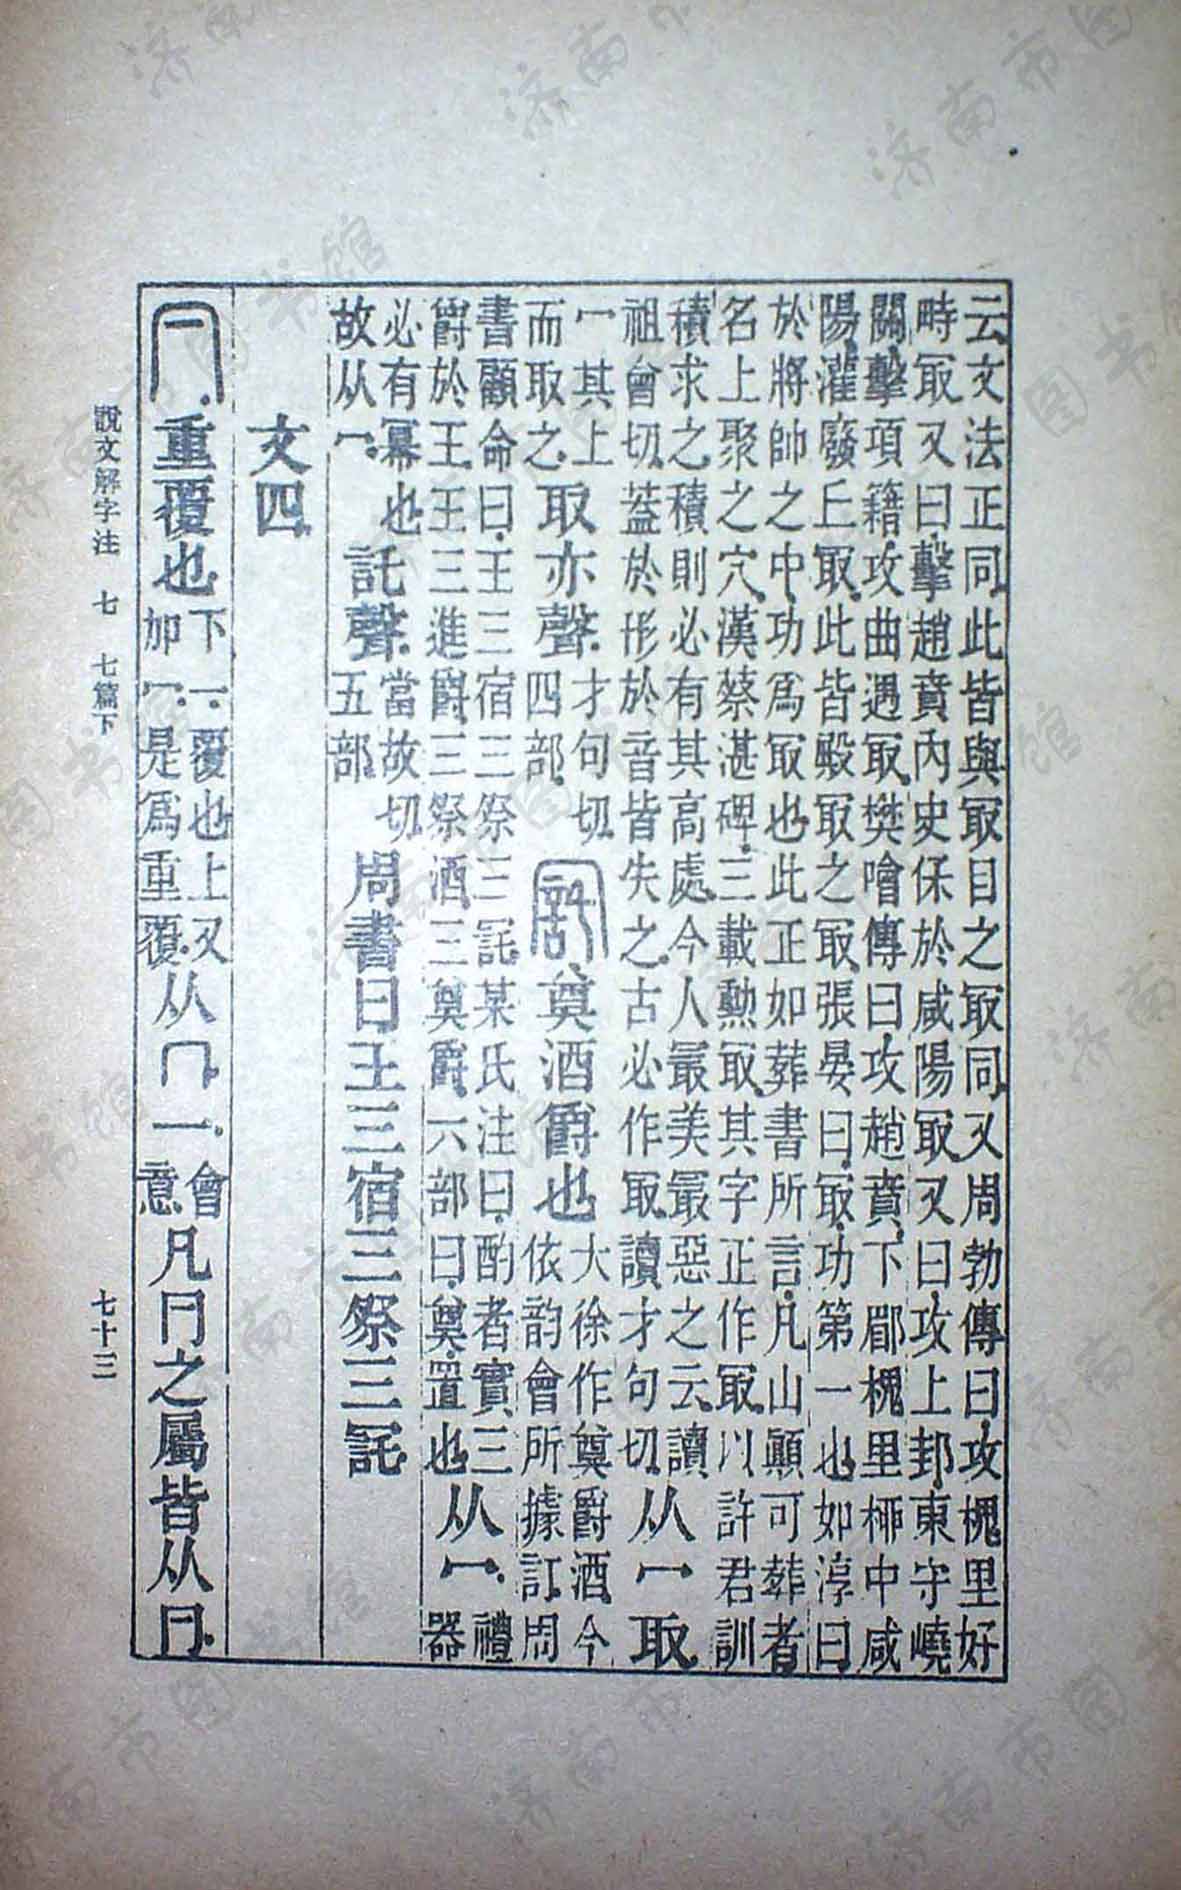 云文法正同此皆與冣目之冣同又周勃傳曰攻槐里好
畤冣又曰擊趙賁內史保於咸陽冣又曰攻上邽東守嶢
關擊項籍攻曲遇冣樊噲傳曰攻趙賁下郿槐里桺中咸
陽灌廢丘冣此皆殿冣之冣張晏曰冣功第一也如淳曰
於將帥之中功爲冣也此正如葬書所言凡山顚可葬者
名上聚之穴漢蔡湛碑三載勳冣其字正作冣以許君訓
積求之積則必有其高處今人最美最惡之云讀
祖會切葢於形於音皆失之古必作冣讀才句切从冖取
冖其上而取之取亦聲才句切四部㓃奠酒爵也大徐作奠爵酒今依韵會所據訂周
書顧命曰王三宿三祭三㓃某氏注曰酌者實三
爵於王王三進爵三祭酒三奠爵六部曰奠置也从冖禮器
必有冪也故从冖託聲當故切五部周書曰王三宿三祭三㓃
文四
冃重覆也下一覆也上又加冖是爲重覆从冂一會意凡冃之屬皆从冃
說文解字注 七 七篇下 七十三
济南市图书馆